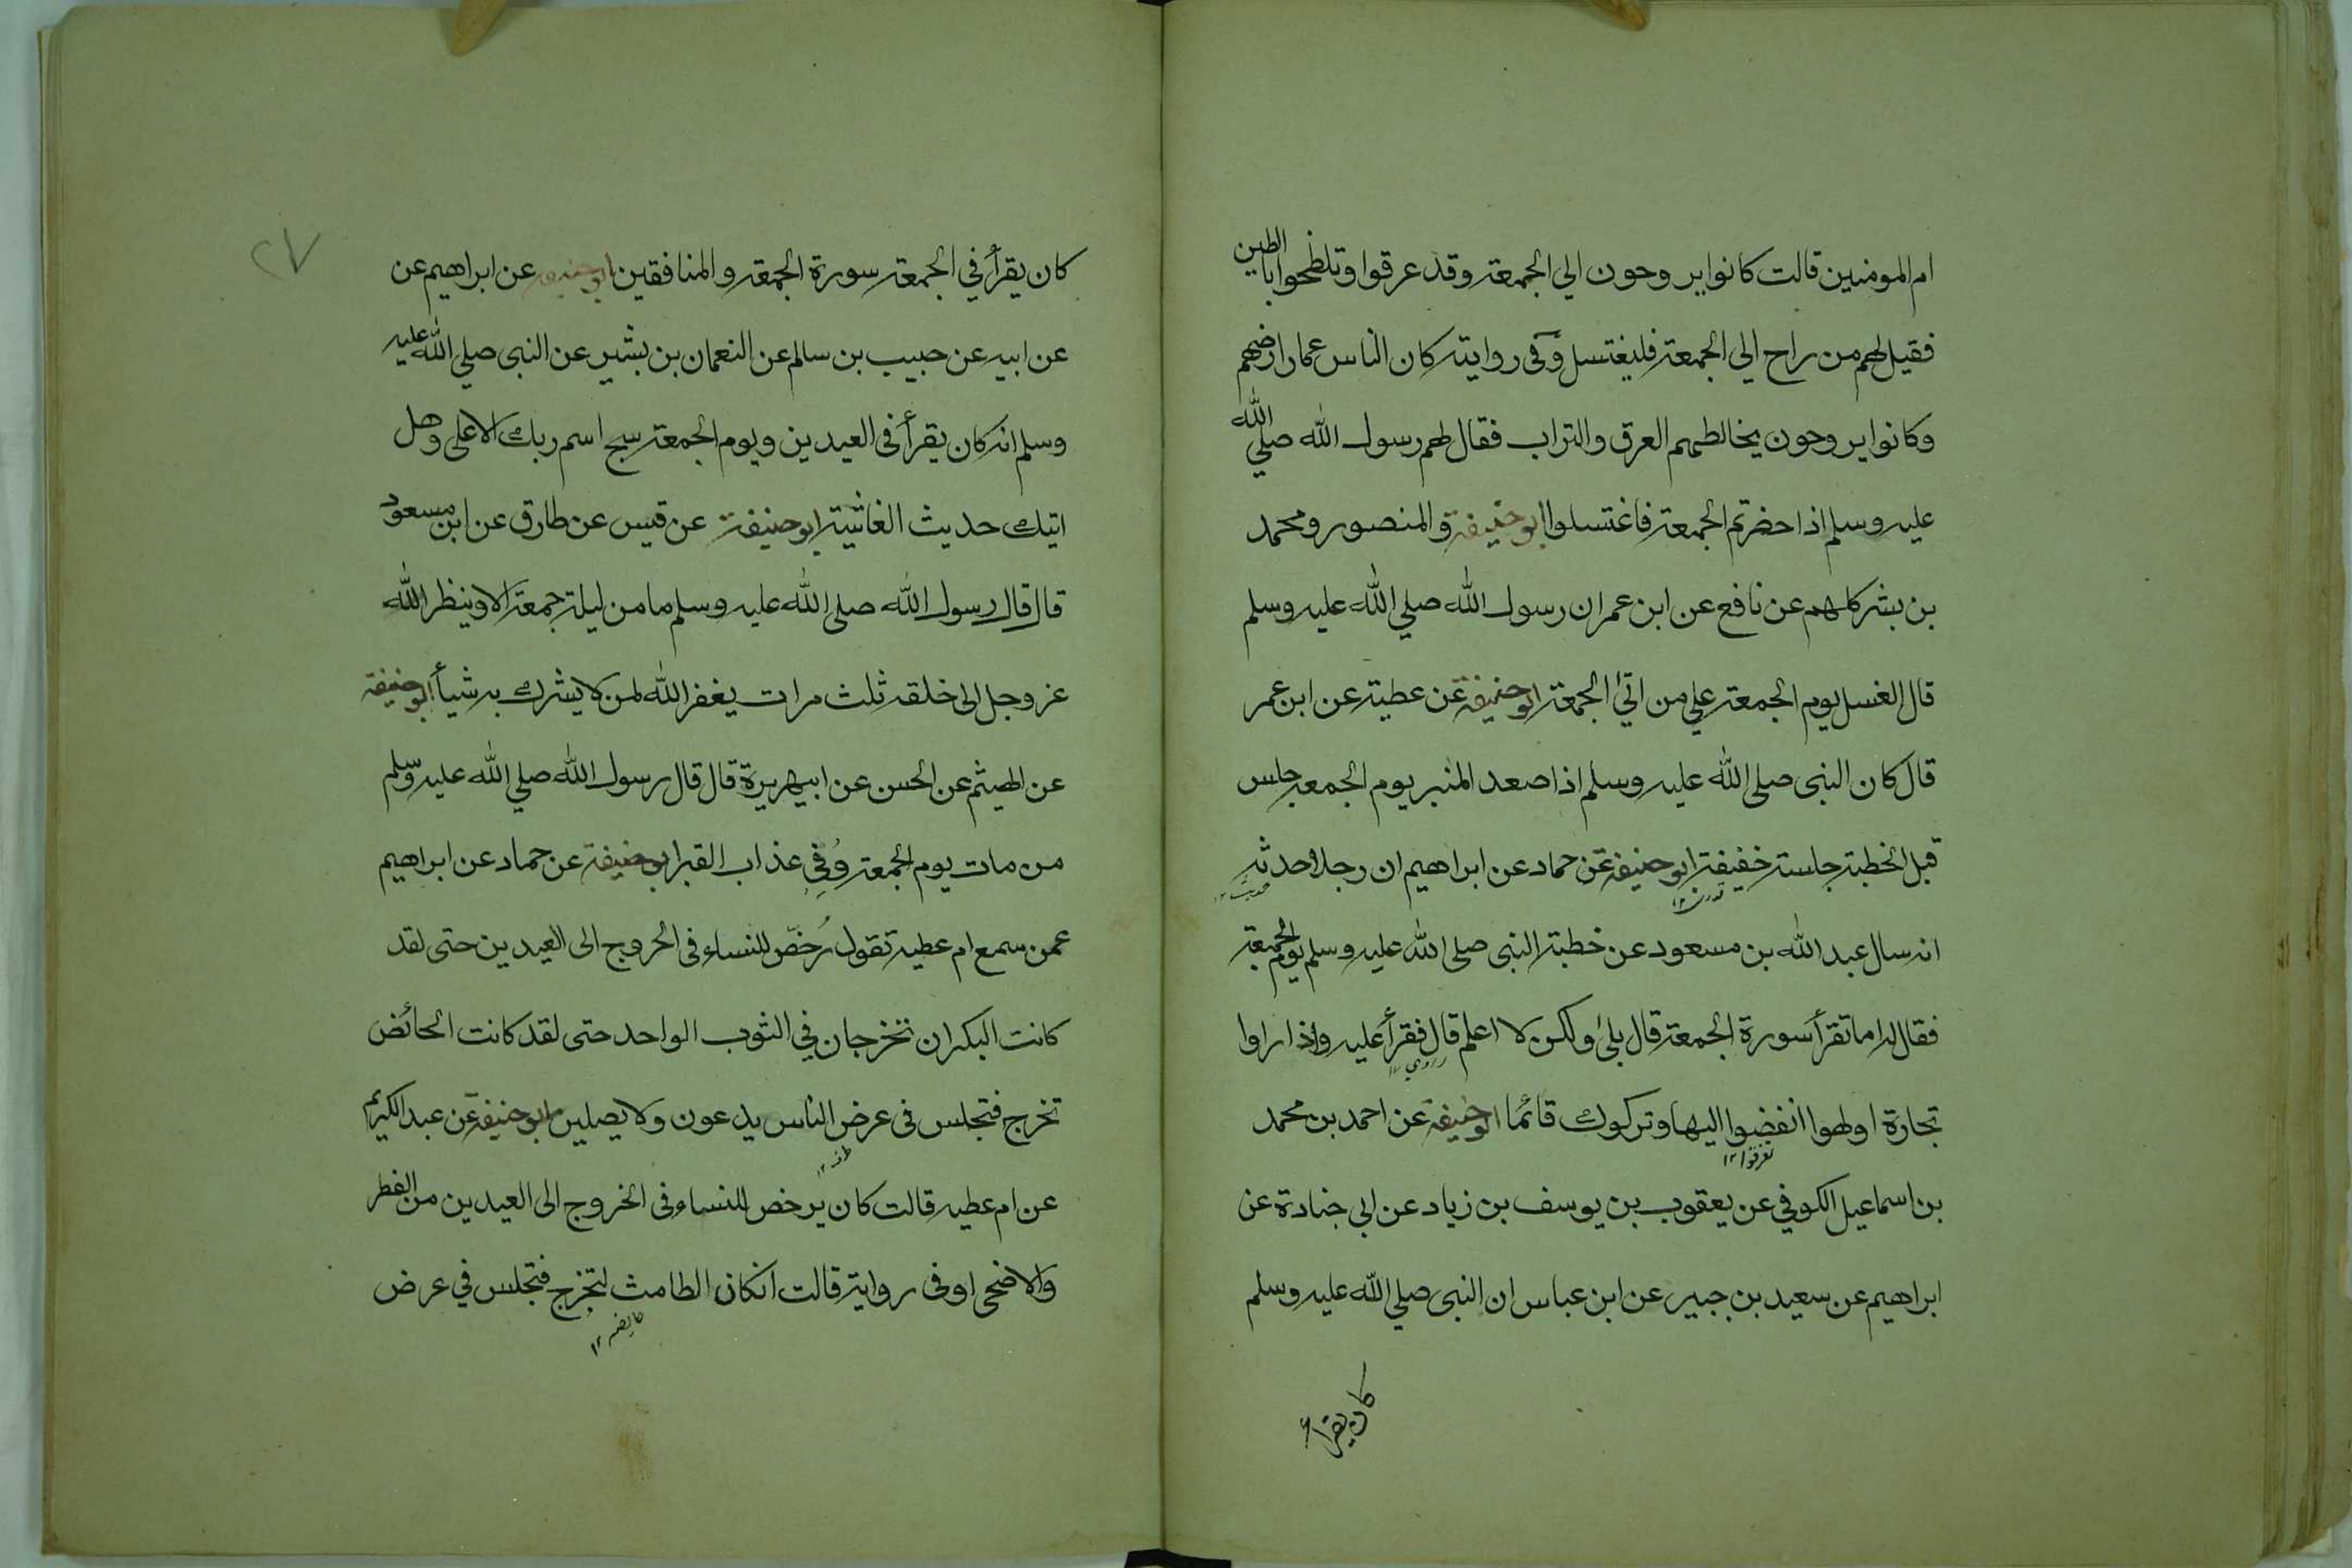 ام المومنين قالت كانوا يروحون الي الجمعة وقد عرقوا وتلطخوا بالطين
فقيل لهم من راح الي الجمعة فليغتسل وفى رواية كان الناس عمار ارضهم
وكانوا يروحون يخالطهم العرق والتراب فقال لهم رسول الله صلي الله
عليه وسلم اذا حضرتم الجمعة فاغتسلوا ابو حنيفة والمنصور ومحمد
بن بشر كلهم عن نافع عن ابن عمر ان رسول الله صلي الله عليه وسلم
قال الغسل يوم الجمعة علي من اتي الجمعة ابو حنيفة عن عطية عن ابن عمر
قال كان النبى صلى الله عليه وسلم اذا صعد المنبر يوم الجمعة جلس
قبل الخطبة جلسة خفيفة ابو حنيفة عن حماد عن ابراهيم ان رجلا حدثه
انه سال عبد الله بن مسعود عن خطبة النبى صلى الله عليه وسلم يوم الجمعة
فقال له اما تقرأ سورة الجمعة قال بلى ولكن لا اعلم قال فقرأ عليه واذا راوا
تجارة او لهوا انفضوا اليها وتركوك قائما ابو حنيفة عن احمد بن محمد
تفرقوا ١٢
بن اسماعيل الكوفي عن يعقوب بن يوسف بن زياد عن ابي جنادة عن
ابراهيم عن سعيد بن جبير عن ابن عباس ان النبى صلي الله عليه وسلم
كان يقرأ
٢٧
كان يقرأ في الجمعة سورة الجمعة والمنافقين ابو حنيفة عن ابراهيم عن
عن ابيه عن حبيب بن سالم عن النعمان بن بشير عن النبى صلي الله عليه
وسلم انه كان يقرأ فى العيدين ويوم الجمعة سبح اسم ربك الاعلى وهل
اتيك حديث الغاشية ابو حنيفة عن قيس عن طارق عن ابن مسعود
قال قال رسول الله صلى الله عليه وسلم ما من ليلة جمعة الا وينظر الله
عز وجل الى خلقه ثلث مرات يغفر الله لمن لا يشرك به شيأ ابو حنيفة
عن الهيثم عن الحسن عن ابي هريرة قال قال رسول الله صلي الله عليه وسلم
من مات يوم الجمعة وُقي عذاب القبر ابو حنيفة عن حماد عن ابراهيم
عمن سمع ام عطية تقول رُخّص للنساء فى الخروج الى العيدين حتى لقد
كانت البكران تخرجان في الثوب الواحد حتى لقد كانت الحائض
تخرج فتجلس فى عرض الناس يدعون ولا يصلين ابو حنيفة عن عبد الكريم
طرف ١٢
عن ام عطية قالت كان يرخص للنساء فى الخروج الى العيدين من الفطر
والاضحى او فى رواية قالت انكان الطامث لتخرج فتجلس في عرض
حايضه ١٢